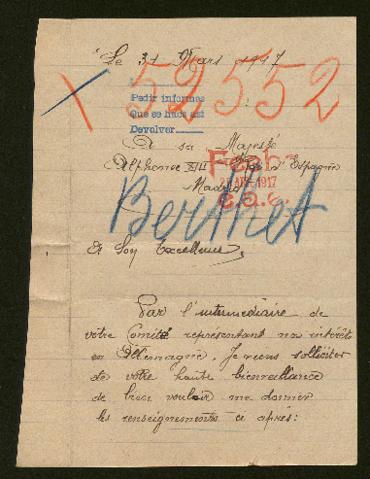 Le 31 Mars 1917
52552
Pedir informes
Que se hace así
Devolver
A sa Majesté
Alphonse XIII Roi d'Espagne
Madrid
1917
Berthet
A Son Excellence,
Par l'intermédiaire de
votre Comité représentant nos intérêts
en Allemagne, Je viens solliciter
de votre haute bienveillance
de bien vouloir me donner
les renseignements ci après: